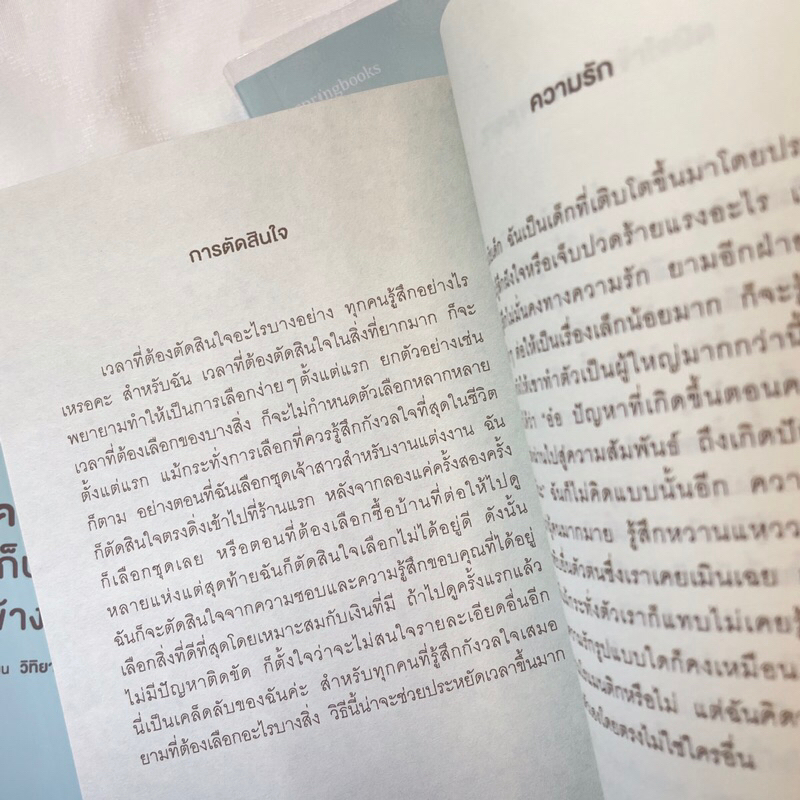 springbooks
การตัดสินใจ
เวลาที่ต้องตัดสินใจอะไรบางอย่าง ทุกคนรู้สึกอย่างไร
เหรอคะ สำหรับฉัน เวลาที่ต้องตัดสินใจในสิ่งที่ยากมาก ก็จะ
พยายามทำให้เป็นการเลือกง่าย ๆ ตั้งแต่แรก ยกตัวอย่างเช่น
เวลาที่ต้องเลือกของบางสิ่ง ก็จะไม่กำหนดตัวเลือกหลากหลาย
ตั้งแต่แรก แม้กระทั่งการเลือกที่ควรรู้สึกกังวลใจที่สุดในชีวิต
ก็ตาม อย่างตอนที่ฉันเลือกชุดเจ้าสาวสำหรับงานแต่งงาน ฉัน
ก็ตัดสินใจตรงดิ่งเข้าไปที่ร้านแรก หลังจากลองแค่ครั้งสองครั้ง
ก็เลือกชุดเลย หรือตอนที่ต้องเลือกซื้อบ้านที่ต่อให้ไปดู
หลายแห่งแต่สุดท้ายฉันก็ตัดสินใจเลือกไม่ได้อยู่ดี ดังนั้น
ฉันก็จะตัดสินใจจากความชอบและความรู้สึกขอบคุณที่ได้อยู่
เลือกสิ่งที่ดีที่สุดโดยเหมาะสมกับเงินที่มี ถ้าไปดูครั้งแรกแล้ว
ไม่มีปัญหาติดขัด ก็ตั้งใจว่าจะไม่สนใจรายละเอียดอื่นอีก
นี่เป็นเคล็ดลับของฉันค่ะ สำหรับทุกคนที่รู้สึกกังวลใจเสมอ
ยามที่ต้องเลือกอะไรบางสิ่ง วิธีนี้น่าจะช่วยประหยัดเวลาขึ้นมาก
ความรัก
ฉันเป็นเด็กที่เติบโตขึ้นมาโดย
ฝังใจหรือเจ็บปวดร้ายแรงอะไร
ไม่มั่นคงทางความรัก ยามอีกฝ่าย
ให้เป็นเรื่องเล็กน้อยมาก ก็จะ
ให้เขาทำตัวเป็นผู้ใหญ่มากกว่านี้
'อ๋อ ปัญหาที่เกิดขึ้นตอน
ไปสู่ความสัมพันธ์ ถึงเกิด
ฉันก็ไม่คิดแบบนั้นอีก
มากมาย รู้สึกหวานแหวว
ตัวตนซึ่งเราเคยเมินเฉย
ตัวเราก็แทบไม่เคย
รักรูปแบบใดก็คงเหมือน
หรือไม่ แต่ฉันคิด
โดยตรงไม่ใช่ใครอื่น